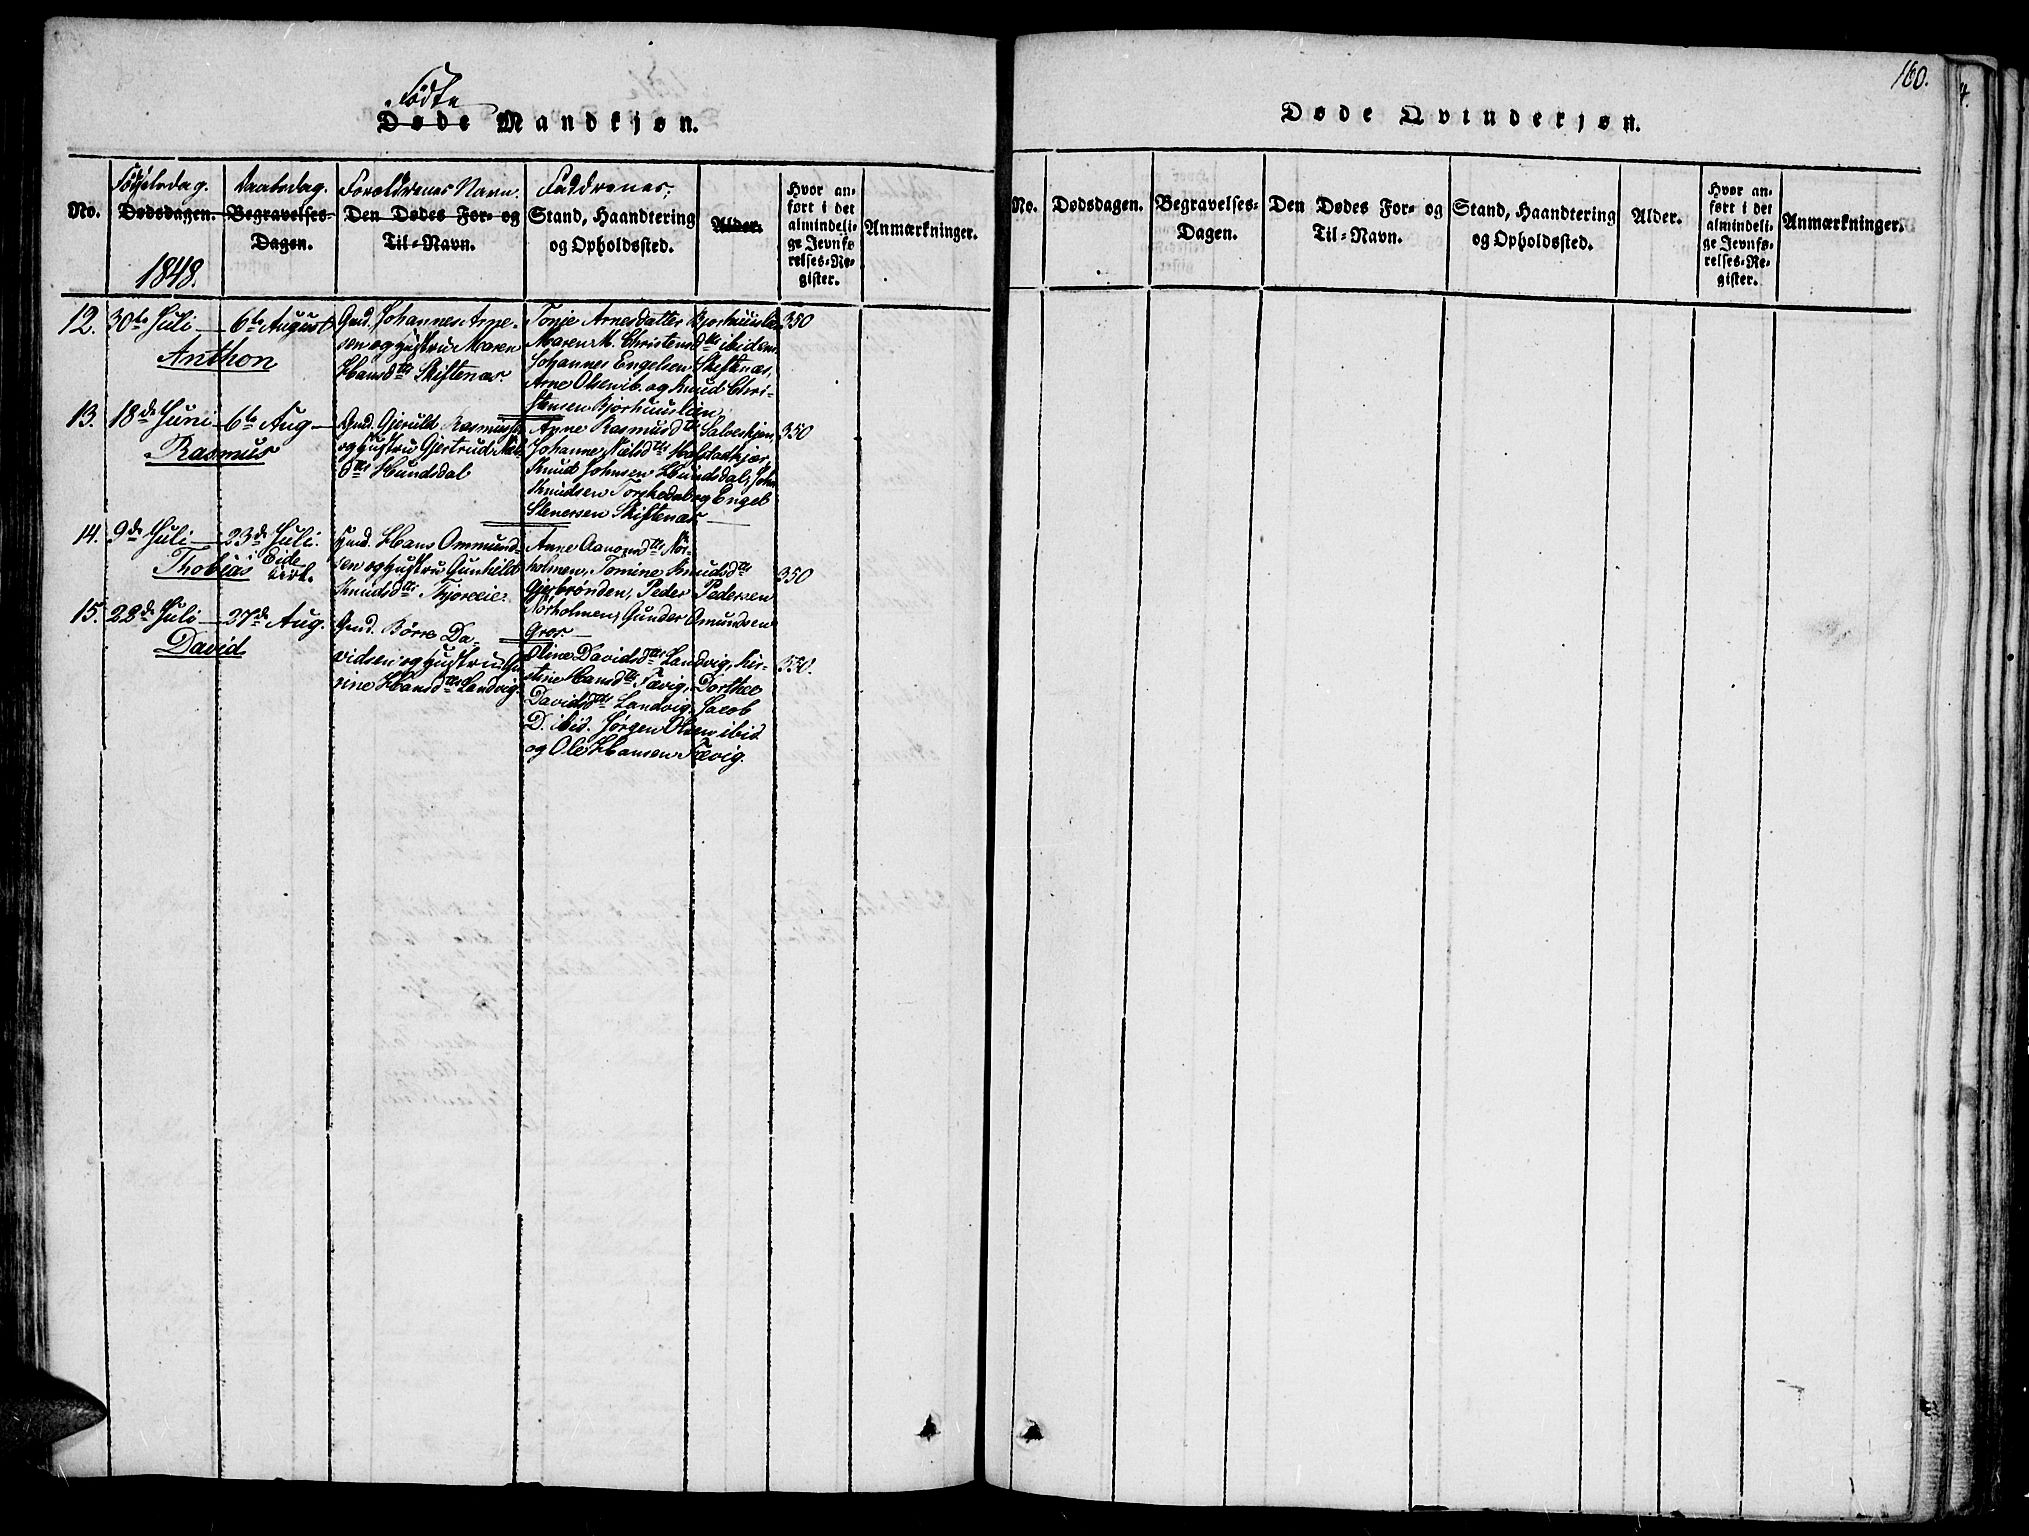 Fødte
Døde Mandkjøn.
No.
Fødselsdag.
Dødsdagen.
Daabsdag.
Begravelses-
Dagen.
Forældrenes Navn.
Den Dødes For- og
Til-Navn.
Faddrenes;
Stand, Haandtering
og Opholdssted.
Alder.
Hvor an-
ført i det
almindeli-
ge Jevnfø-
relses-Re-
gister.
Anmærkninger.
1848.
12.
30te Juli — 6te August
Anthon
Gmd. Johannes Arne-
sen og Hustru Maren
Hansdtr Skiftenæs.
Tonje Arnesdatter Bjorhuuslien
Maren M. Christensdtr ibidem
Johannes Engelsen Skiftenæs,
Arne Olsen ib. og Knud Chri-
stensen Bjorhuuslien,
350
13.
18de Juni — 6te Aug —
Rasmus
Gmd. Gjeruld Rasmussen
og Hustru Gjertrud Niels
dtr Hundsdal
Anne Rasmusdtr Salveskjer,
Johanne Nielsdtr Halstadkjær,
Knud Johnsen Hundsdal, John
Knudsen Torskedal og Engel
Stenersen Skiftenæs —
350
14.
9de Juli — 23de Juli.
Thobias i Eide
Kirk.
Gmd. Hans Ommund-
sen og Hustru Gunhild
Knudsdtr Fjæreeie.
Anne Aanondsdtr Nør-
holmen, Tomine Knudsdtr
Gjerbrønden, Peder Pedersen
Nørholmen, Gunder Omundsen
Gros. —
350
15.
22de Juli — 27de Aug.
David
Gmd. Børre Da-
vidsen og Hustru Gu-
rine Hansdtr Landvig.
Oline Davidsdtr Landvig, Kir-
stine Hansdtr Fævig, Dorthee
Davidsdtr Landvig, Jacob
D. ibid. Jørgen Olsen ibid
og Ole Hansen Fævig.
350.
160.
4.
Døde Qvinderjøn.
No.
Dødsdagen.
Begravelses-
Dagen.
Den Dødes For- og
Til-Navn.
Stand, Haandtering
og Opholdssted.
Alder.
Hvor an-
ført i det
almindeli-
ge Jevnfø-
relses-Re-
gister.
Anmærkninger.